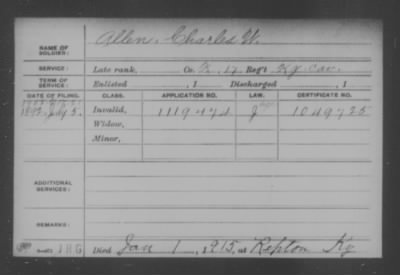 NAME OF SOLDIER: Allen, Charles W.
SERVICE: Late rank, Co. 17 Reg't Ky. Cav.
TERM OF SERVICE: Enlisted , 1 Discharged , 1
DATE OF FILING. CLASS. APPLICATION NO. LAW. CERTIFICATE NO.
1892, July 5. Invalid, 1119474 1049725
Widow,
Minor,
ADDITIONAL SERVICES:
REMARKS:
Died Jan 1, 1915, at Repton Ky